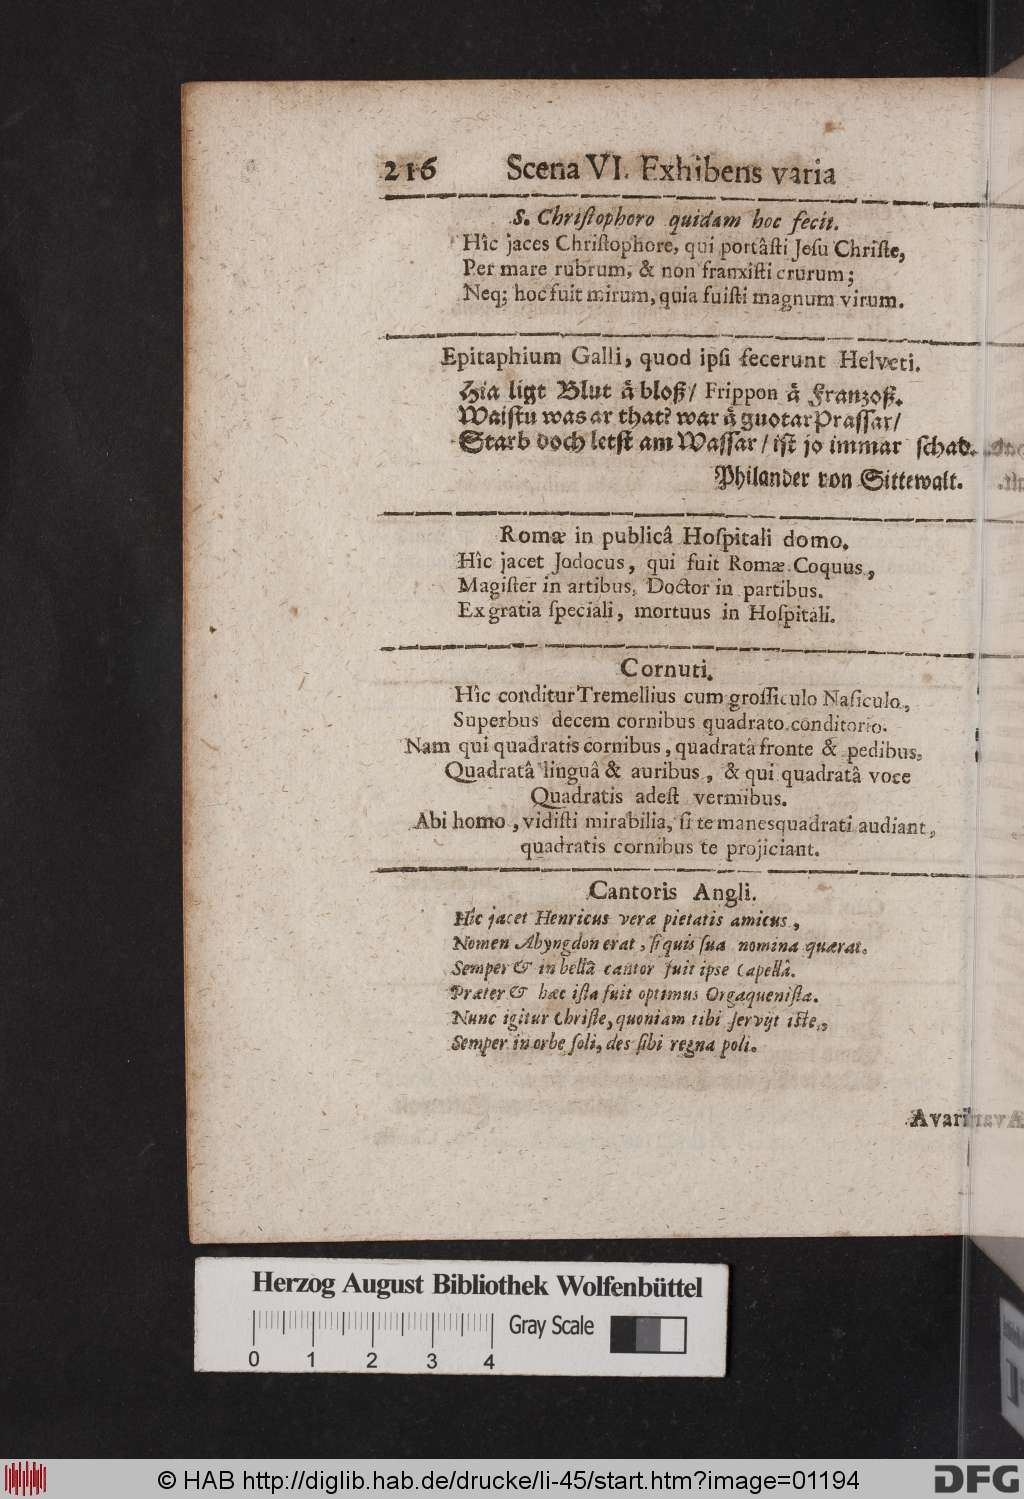 216 Scena VI. Exhibens varia
S. Chriſtophoro quidam hoc fecit.
Hîc jaces Chriſtophore, qui portâſti Jeſu Chriſte,
Per mare rubrum, & non franxiſti crurum;
Neq; hoc fuit mirum, quia fuiſti magnum virum.
Epitaphium Galli, quod ipſi fecerunt Helveti.
Hia ligt Blut å bloß / Frippon å Franzoß.
Waiſtu was ar that? war å guotar Praſſar /
Starb doch letſt am Waſſar / iſt jo immar ſchad.
Philander von Sittewalt.
Romæ in publicâ Hoſpitali domo.
Hîc jacet Jodocus, qui fuit Romæ Coquus,
Magiſter in artibus, Doctor in partibus.
Ex gratia ſpeciali, mortuus in Hoſpitali.
Cornuti.
Hîc conditur Tremellius cum groſſiculo Naſiculo,
Superbus decem cornibus quadrato conditorio.
Nam qui quadratis cornibus, quadratâ fronte & pedibus,
Quadratâ linguâ & auribus, & qui quadratâ voce
Quadratis adeſt vermibus.
Abi homo, vidiſti mirabilia, ſi te manes quadrati audiant,
quadratis cornibus te projiciant.
Cantoris Angli.
Hîc jacet Henricus veræ pietatis amicus,
Nomen Abyngdon erat, ſi quis ſua nomina quærat.
Semper & in bellâ cantor fuit ipſe Capellâ.
Præter & hæc iſta fuit optimus Orgaqueniſta.
Nunc igitur Chriſte, quoniam tibi ſervijt iſte,
Semper in orbe ſoli, des ſibi regna poli.
Avari
Herzog August Bibliothek Wolfenbüttel
Gray Scale
0 1 2 3 4
© HAB http://diglib.hab.de/drucke/li-45/start.htm?image=01194
DFG